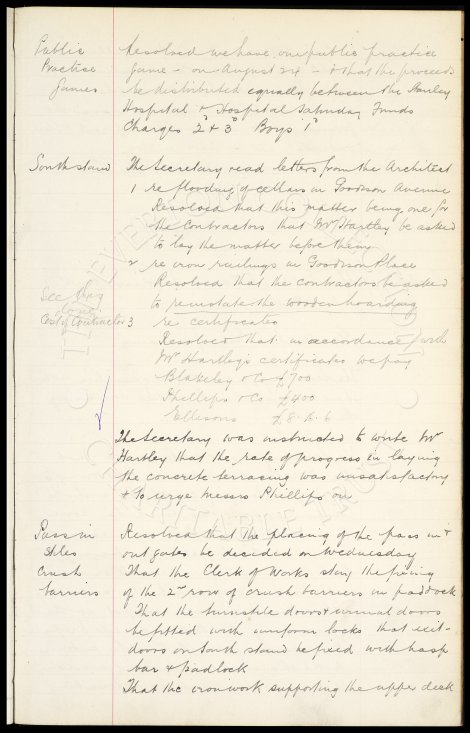 Public Resolved we have one public practice
Practice Game - on August 24 - & that the proceeds
Games be distributed equally between the Stanley
Hospital & Hospital Saturday Funds
Charges 2d & 3d Boys 1d
South stand The Secretary read letters from the Architect
1 re flooding of cellars in Goodison Avenue
Resolved that this matter being one for
the Contractors that Mr Hartley be asked
to lay the matter before them
2 re iron railings in Goodison Place
Resolved that the contractors be asked
See they to reinstate the wooden hoarding
done
Cost of Contractor 3 re certificates
Resolved that in accordance with
Mr Hartley's certificates we pay
Blakeley & Co £700
Phillips & Co £400
Ellisons £8. 6. 6
The Secretary was instructed to write Mr
Hartley that the rate of progress in laying
the concrete terracing was unsatisfactory
& to urge Messrs Phillips on
Pass in Resolved that the placing of the pass in &
Stiles out gates be decided on Wednesday
Crush That the Clerk of Works stay the fixing
barriers of the 2nd row of crush barriers in paddock
That the turnstile doors & urinal doors
be fitted with uniform locks that exit-
doors on South stand be fixed with hasp
bar & padlock
That the ironwork supporting the upper deck